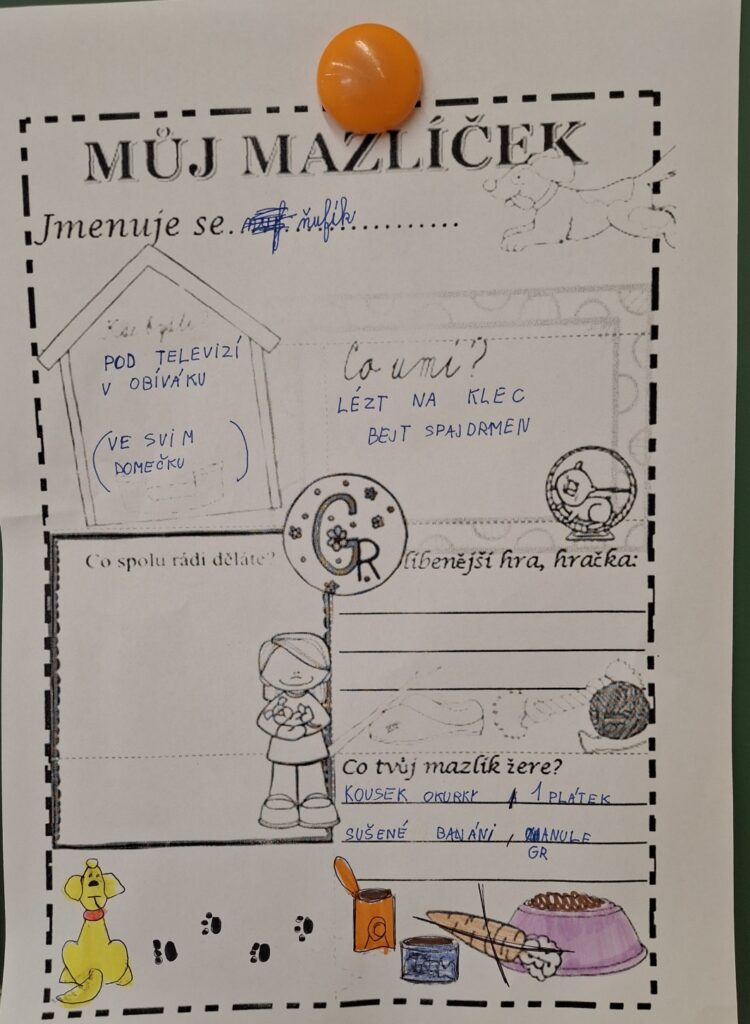 MŮJ MAZLÍČEK
Jmenuje se. ňufík
Kde bydlí?
POD TELEVIZÍ
V OBÍVÁKU
(VE SVIM
DOMEČKU)
Co umí?
LÉZT NA KLEC
BEJT SPAJDRMEN
GR
Co spolu rádi děláte?
líbenější hra, hračka:
Co tvůj mazlík žere?
KOUSEK OKURKY , 1 PLÁTEK
SUŠENÉ BANÁNI , ANULE
GR